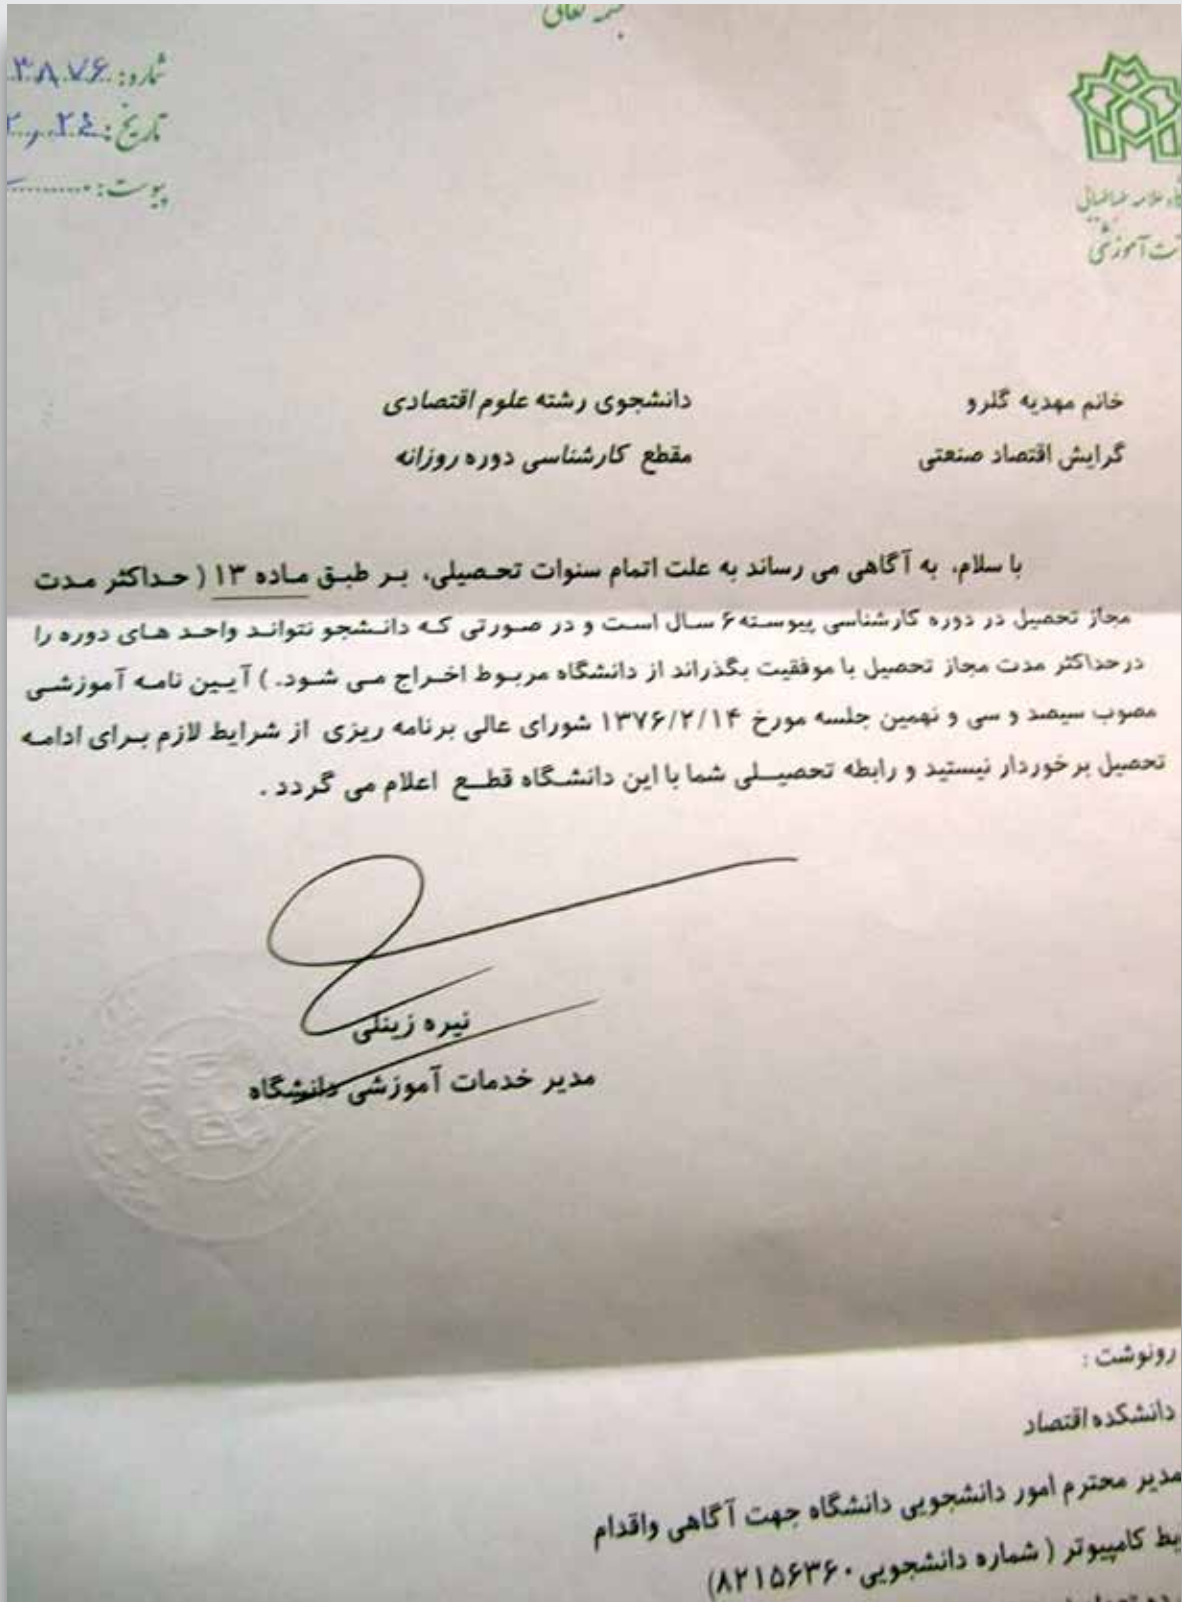 بسمه تعالی
شماره: ۳۸۷۶
تاریخ:
پیوست:
علامه طباطبائی
آموزشی
خانم مهدیه گلرو دانشجوی رشته علوم اقتصادی
گرایش اقتصاد صنعتی مقطع کارشناسی دوره روزانه
با سلام، به آگاهی می رساند به علت اتمام سنوات تحصیلی، بر طبق ماده ۱۳ ( حداکثر مدت
مجاز تحصیل در دوره کارشناسی پیوسته ۶ سال است و در صورتی که دانشجو نتواند واحد های دوره را
درحداکثر مدت مجاز تحصیل با موفقیت بگذراند از دانشگاه مربوط اخراج می شود. ) آیین نامه آموزشی
مصوب سیصد و سی و نهمین جلسه مورخ ۱۳۷۶/۲/۱۴ شورای عالی برنامه ریزی از شرایط لازم برای ادامه
تحصیل برخوردار نیستید و رابطه تحصیلی شما با این دانشگاه قطع اعلام می گردد .
نیره زینلی
مدیر خدمات آموزشی دانشگاه
رونوشت :
دانشکده اقتصاد
مدیر محترم امور دانشجویی دانشگاه جهت آگاهی واقدام
کامپیوتر ( شماره دانشجویی ۸۲۱۵۶۳۶۰)